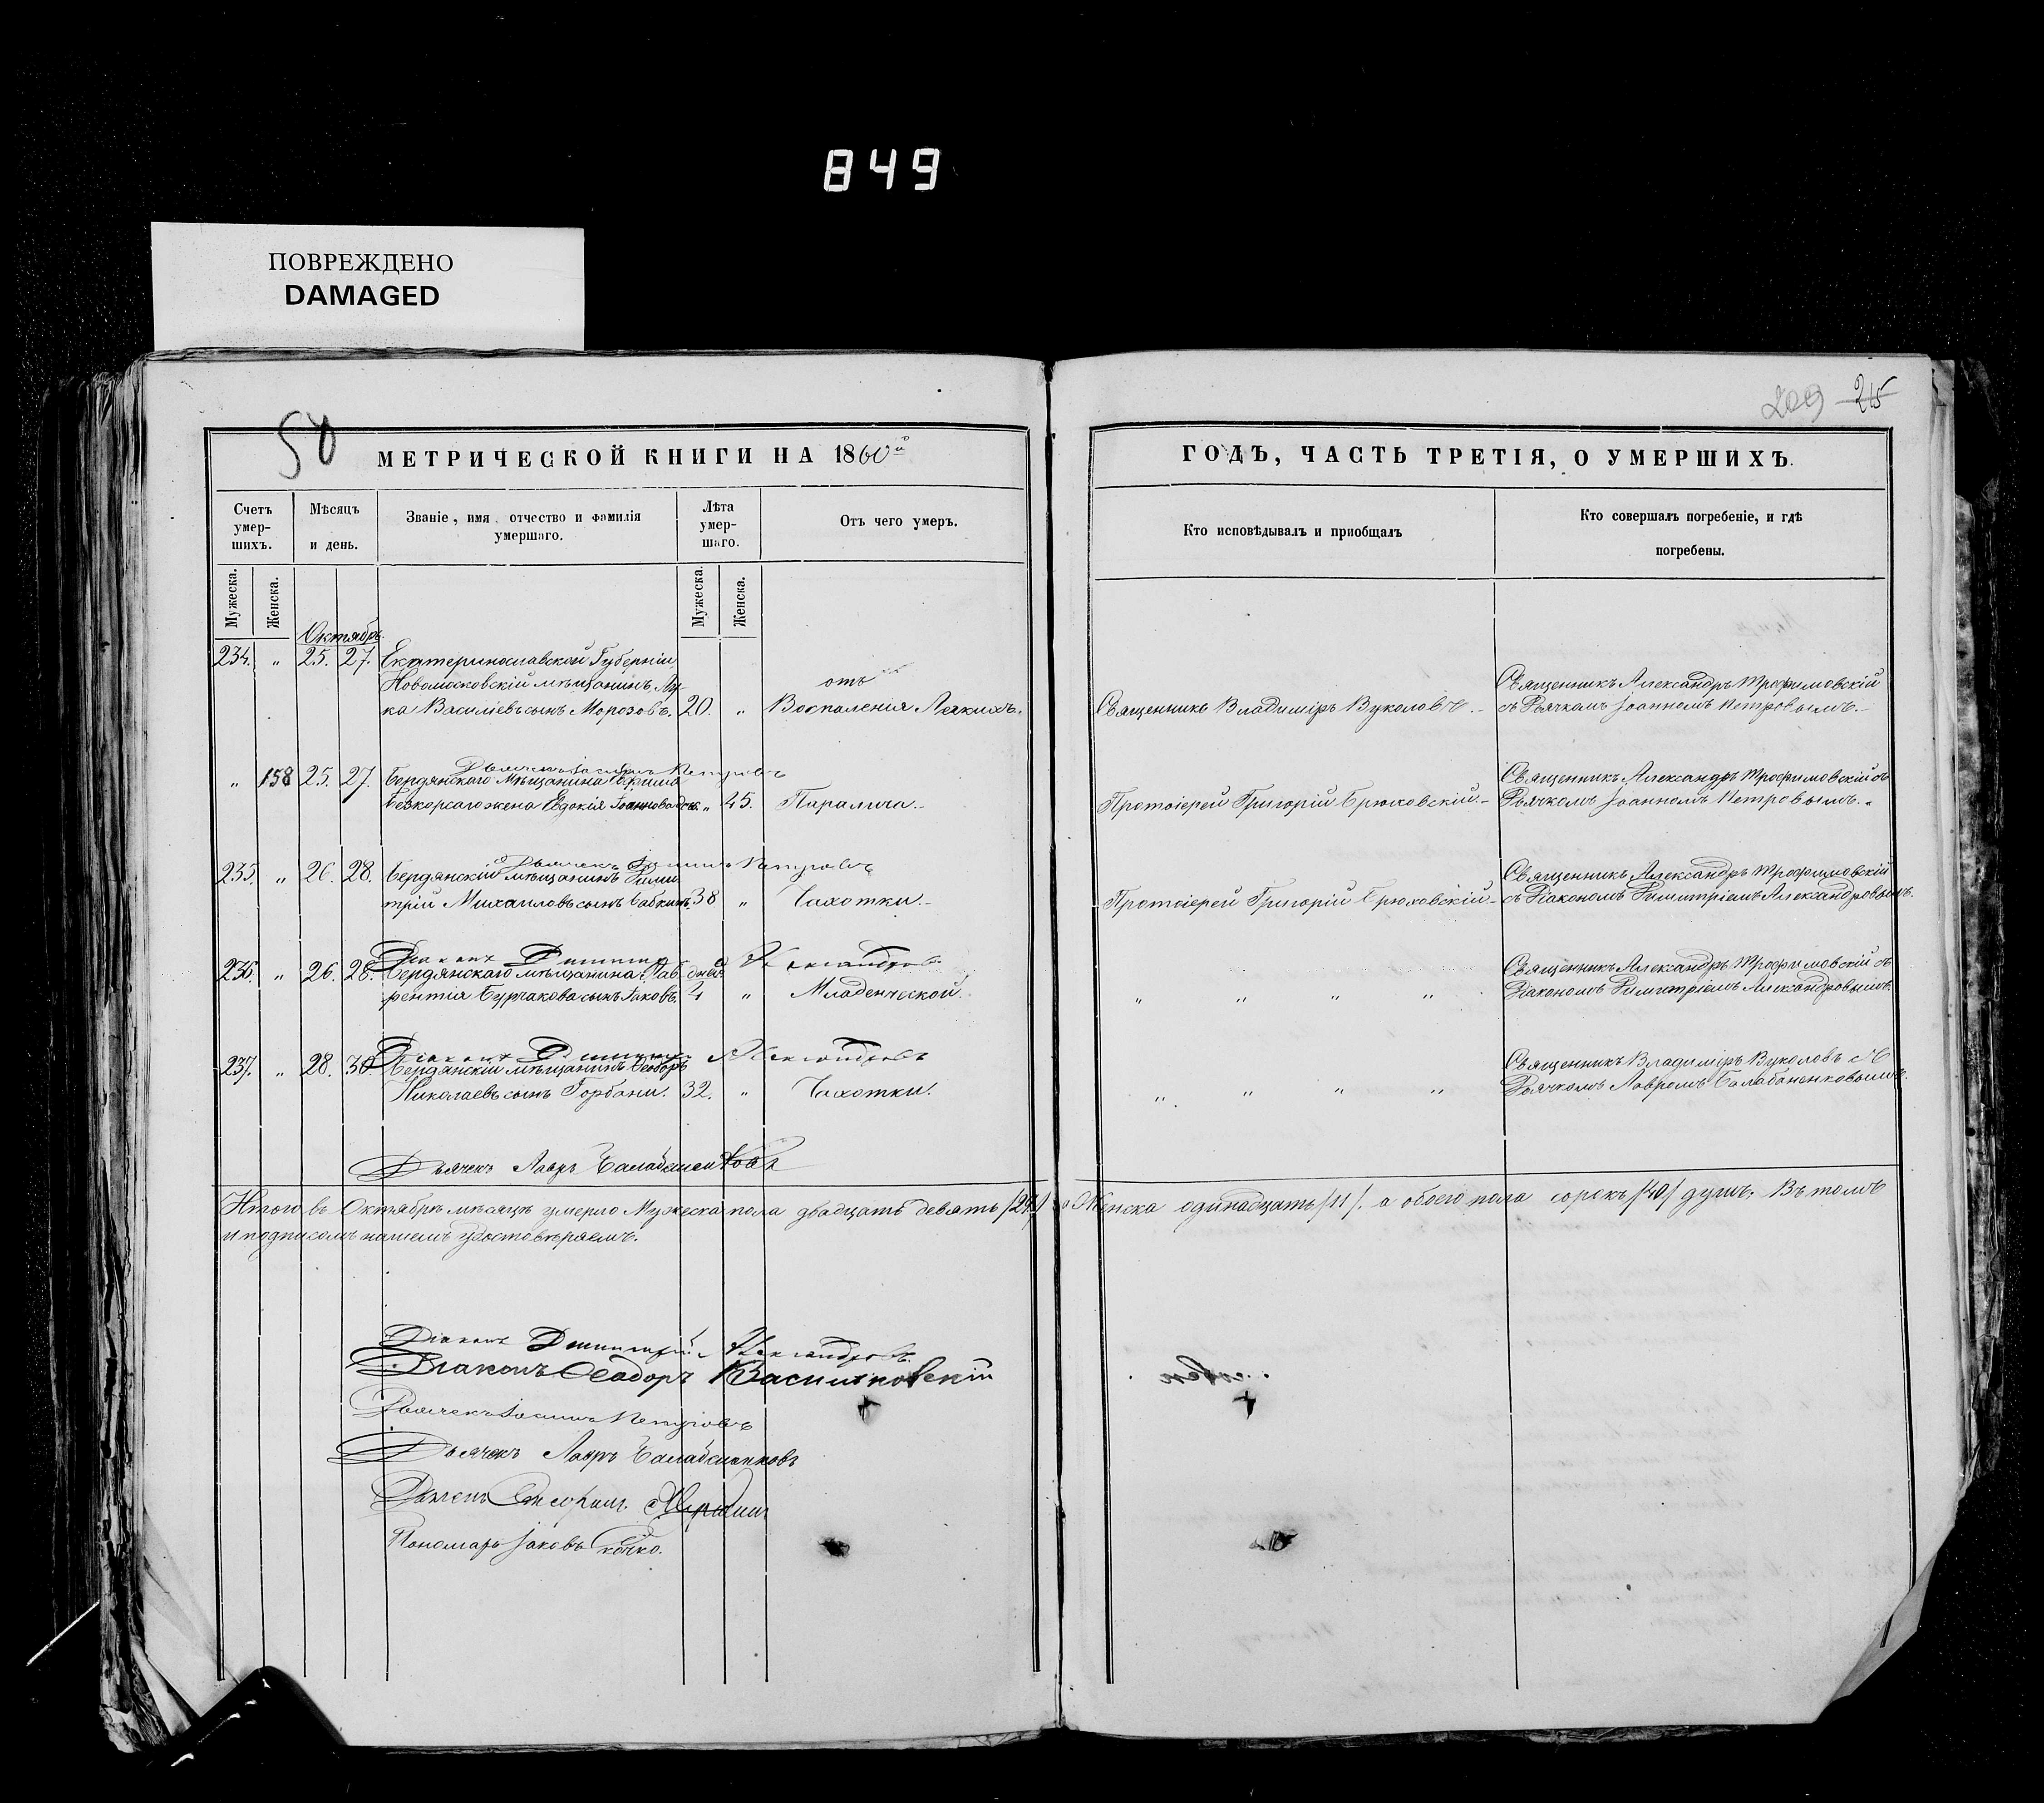 849
ПОВРЕЖДЕНО
DAMAGED
50
209 215
МЕТРИЧЕСКОЙ КНИГИ НА 1860й
ГОДЪ, ЧАСТЬ ТРЕТІЯ, О УМЕРШИХЪ.
Счетъ умер-шихъ.
Мѣсяцъ и день.
Званіе, имя, отчество и фамилія умершаго.
Лѣта умер-шаго.
Отъ чего умеръ.
Кто исповѣдывалъ и пріобщалъ
Кто совершалъ погребеніе, и гдѣ погребены.
Мужеска. Женска. Мужеска. Женска.
Октябрь
234. " 25. 27. Екатеринославской Губерніи
Новомосковскій мѣщанинъ Лу-
ка Василіевъ сынъ Морозовъ. 20. " отъ Воспаленія Легкихъ.
Священникъ Владиміръ Вуколовъ.
Священникъ Александръ Трофимовскій
съ Дьячкомъ Іоанномъ Петровымъ.
Дьячекъ Іоаннъ Петровъ
" 158 25. 27. Бердянскаго Мѣщанина
жена Евдокія " 45. Паралича.
Протоіерей Григорій Брюховскій.
Священникъ Александръ Трофимовскій съ
Дьячкомъ Іоанномъ Петровымъ.
Дьячекъ Іоаннъ Петровъ
235. " 26. 28. Бердянскій мѣщанинъ Дими
трій Михаиловъ сынъ Бабкинъ. 38 " Чахотки.
Протоіерей Григорій Брюховскій
Священникъ Александръ Трофимовскій
съ Діакономъ Димитріемъ Александровымъ.
Діаконъ Димитрій Александровъ
236. " 26. 28. Бердянскаго мѣщанина Лав
рентія Бурлакова сынъ Іаковъ. дней 4 " Младенческой.
" " " "
Священникъ Александръ Трофимовскій съ
Діакономъ Димитріемъ Александровымъ.
Діаконъ Димитрій Александровъ
237. " 28. 30. Бердянскій мѣщанинъ Ѳеодоръ
Николаевъ сынъ Горбани. 32. " Чахотки.
" " " "
Священникъ Владиміръ Вуколовъ съ
Дьячкомъ Лавромъ Балабаненковымъ.
Дьячекъ Лавръ Балабаненковъ
Итого въ Октябрѣ мѣсяцѣ умерло Мужеска пола двадцать девять /29/ а Женска одинадцать /11/. а обоего пола сорокъ /40/ душъ. Въ томъ
и подписомъ нашемъ удостовѣряемъ.
Діаконъ Димитрій Александровъ.
Діаконъ Ѳеодоръ Васильковскій
Дьячекъ Іоаннъ Петровъ
Дьячекъ Лавръ Балабаненковъ
Пономарь Іаковъ